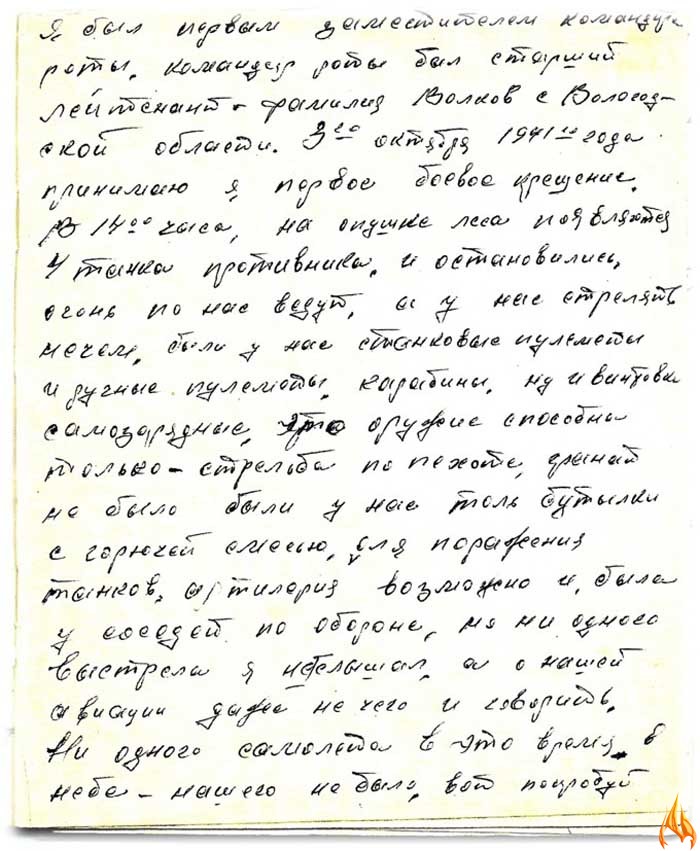 Я был первым заместителем командира
роты, командир роты был старший
лейтенант - фамилия Волков с Вологод-
ской области. 3го октября 1941го года
принимаю я, первое боевое крещение.
В 14оо часа, на опушке леса появляются
4 танка противника, и остановились,
огонь по нас ведут, а у нас стрелять
нечем, были у нас станковые пулеметы
и ручные пулеметы, карабины, ну и винтовки
самозарядные, это оружие способна
только - стрельба по пехоте, гранат
не было были у нас толь бутылки
с горючей смесью, для поражения
танков, артилерия возможно и, была
у соседей по обороне, но ни одного
выстрела я неслышал, а о нашей
авиации даже не чего и говорить.
Ни одного самолета в это время, в
небе - нашего не было, вот попробуй